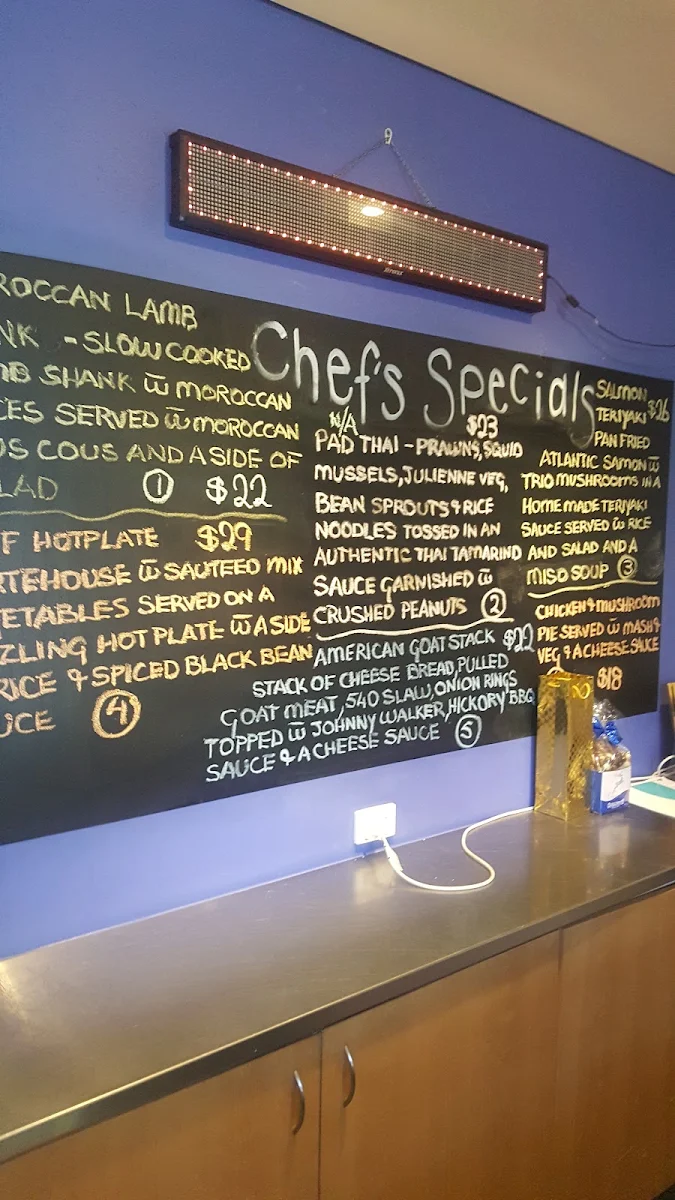 ROCCAN LAMB
NK - SLOW COOKED
MB SHANK W̄ MOROCCAN
CES SERVED W̄ MOROCCAN
US COUS AND A SIDE OF
LAD ① $22
F HOTPLATE $29
RTEHOUSE W̄ SAUTEED MIX
ETABLES SERVED ON A
ZLING HOT PLATE W̄ A SIDE
RICE & SPICED BLACK BEAN
UCE ④
Chef's Specials
N/A $23
PAD THAI - PRAWNS, SQUID
MUSSELS, JULIENNE VEG,
BEAN SPROUTS & RICE
NOODLES TOSSED IN AN
AUTHENTIC THAI TAMARIND
SAUCE GARNISHED W̄
CRUSHED PEANUTS ②
AMERICAN GOAT STACK $22
STACK OF CHEESE BREAD, PULLED
GOAT MEAT, 540 SLAW, ONION RINGS
TOPPED W̄ JOHNNY WALKER, HICKORY BBQ
SAUCE & A CHEESE SAUCE ⑤
SALMON
TERIYAKI $26
PAN FRIED
ATLANTIC SAMON W̄
TRIO MUSHROOMS IN A
HOME MADE TERIYAKI
SAUCE SERVED W̄ RICE
AND SALAD AND A
MISO SOUP ③
CHICKEN & MUSHROOM
PIE SERVED W̄ MASH &
VEG & A CHEESE SAUCE
$18